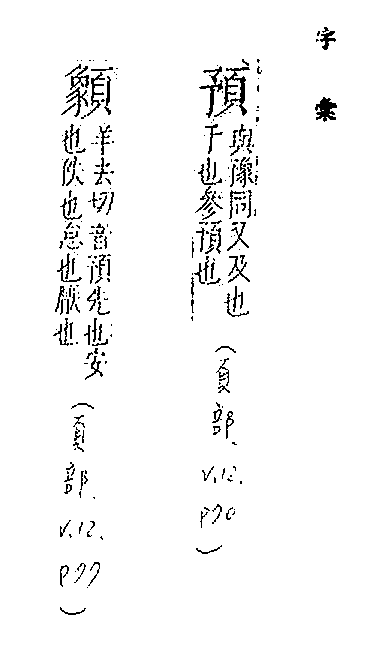 字彙
預 與豫同又及也
干也參預也
(頁部.V.12.P70)
䫣 羊去切音預先也安
也佚也怠也厭也
(頁部.V.12.P77)